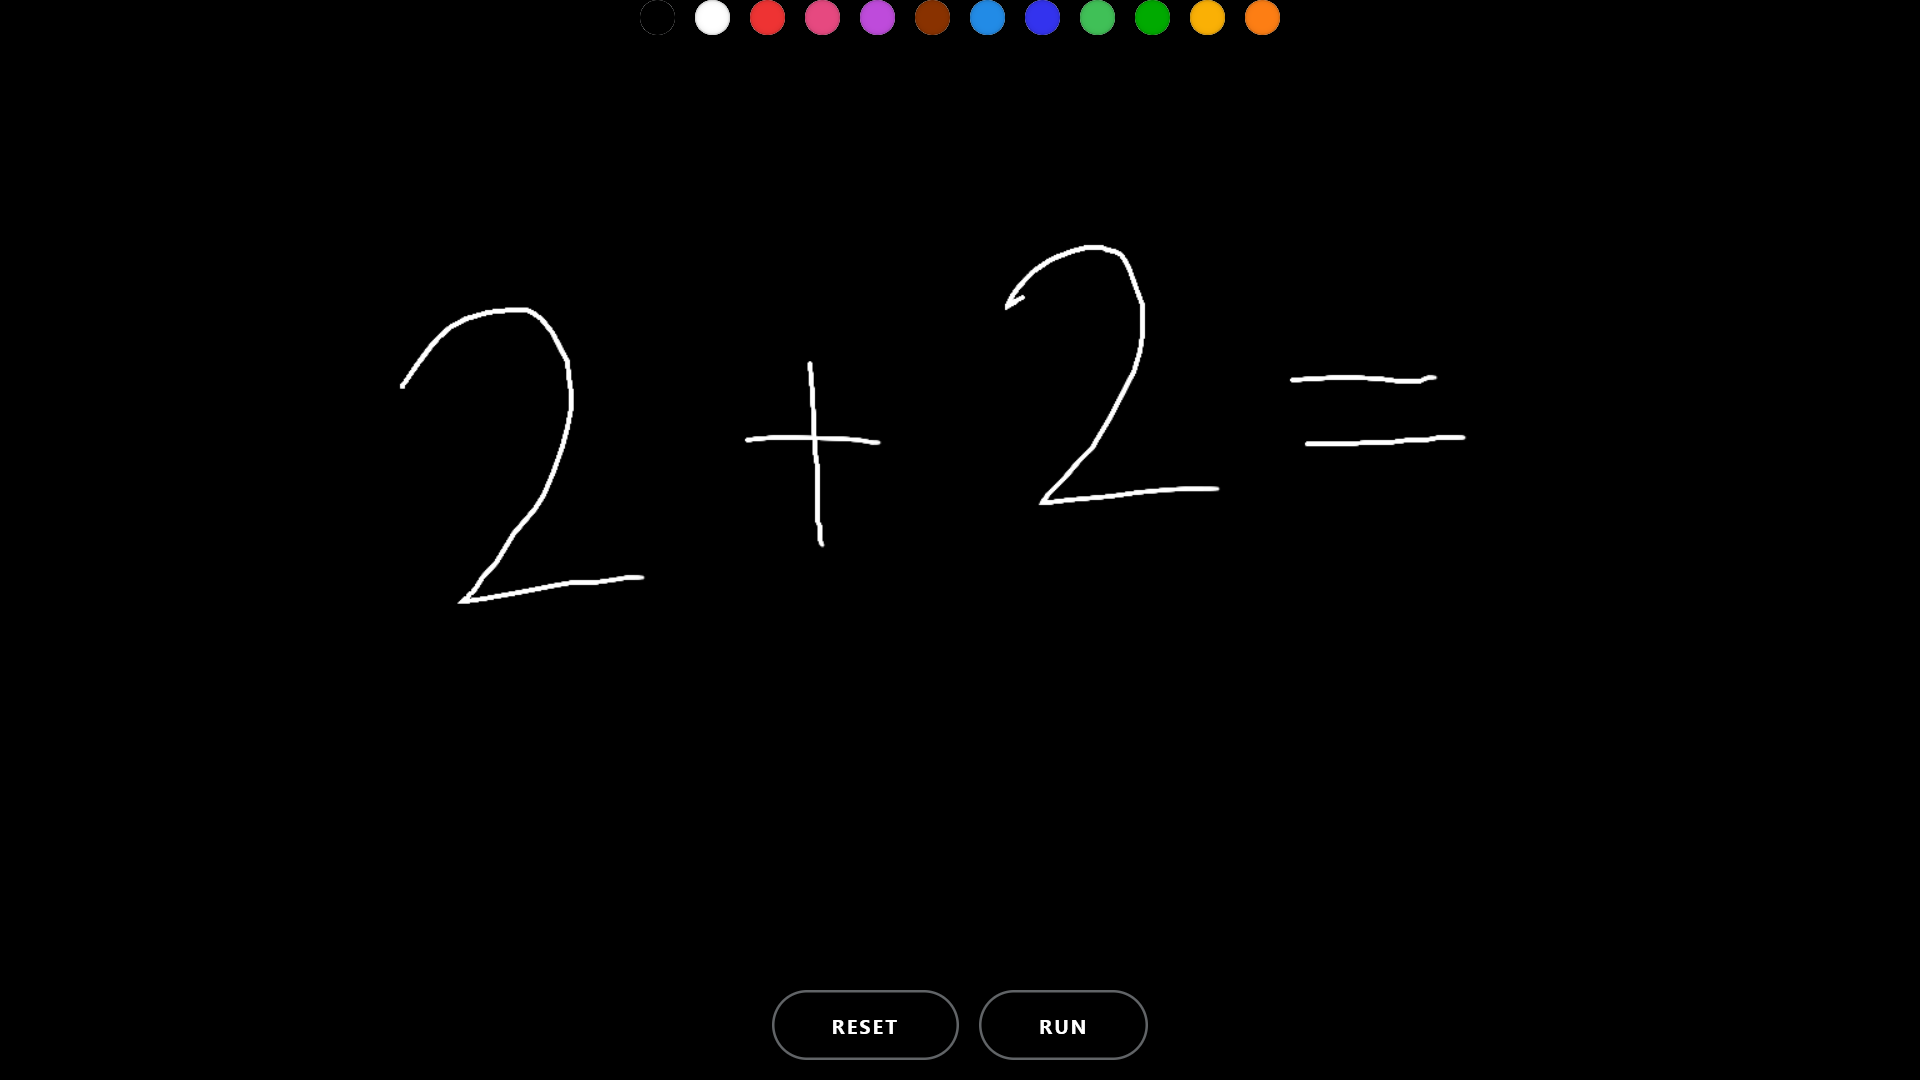 2 + 2 =
RESET RUN